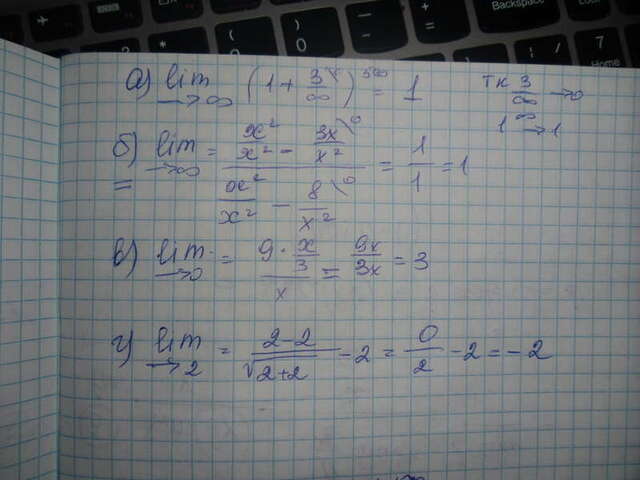 а) lim →∞ (1 + 3/∞)^5∞ = 1 тк 3/∞ →0
1^∞ →1
б) lim →∞ = (x²/x² - 3x/x² →0) / (x²/x² - 8/x² →0) = 1/1 = 1
=
в) lim →0 = (9 · x/3)/x = 9x/3x = 3
г) lim →2 = (2-2)/√(2+2) - 2 = 0/2 - 2 = -2
Backspace
7